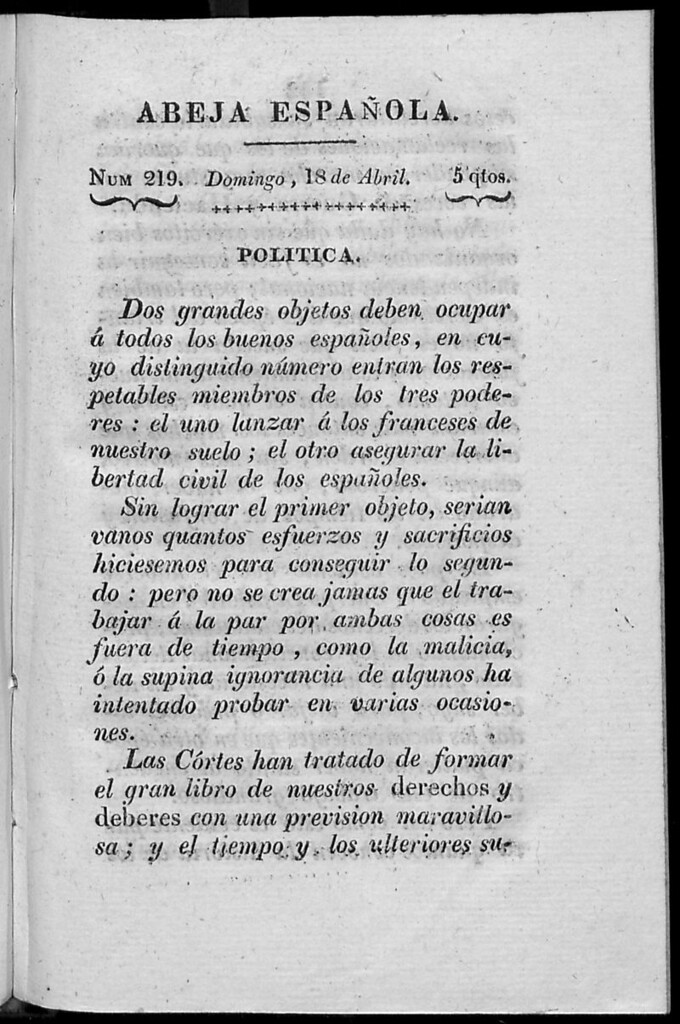 ABEJA ESPAÑOLA.
NUM 219. Domingo, 18 de Abril. 5 qtos.
POLITICA.
Dos grandes objetos deben ocupar
á todos los buenos españoles, en cu-
yo distinguido número entran los res-
petables miembros de los tres pode-
res : el uno lanzar á los franceses de
nuestro suelo ; el otro asegurar la li-
bertad civil de los españoles.
Sin lograr el primer objeto, serian
vanos quantos esfuerzos y sacrificios
hiciesemos para conseguir lo segun-
do : pero no se crea jamas que el tra-
bajar á la par por ambas cosas es
fuera de tiempo , como la malicia,
ó la supina ignorancia de algunos ha
intentado probar en varias ocasio-
nes.
Las Córtes han tratado de formar
el gran libro de nuestros derechos y
deberes con una prevision maravillo-
sa ; y el tiempo y los ulteriores su-